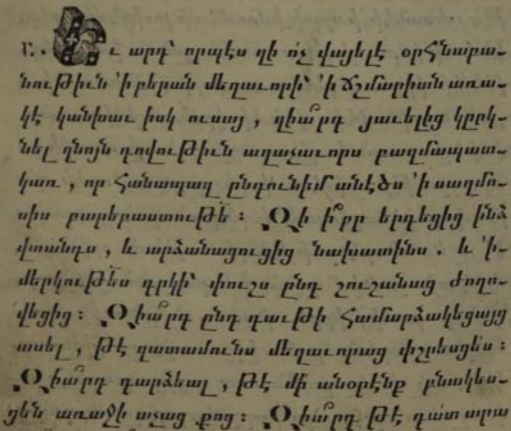 Ր. Եւ արդ՝ որպէս զի ոչ վայելէ օրհնաբա-
նութիւն ՚ի բերան մեղաւորի՝ ՚ի Ճշմարիտն առա-
կէ կանխաւ իսկ ուսայ, զիա՞րդ յաւելից կրկ-
նել զնոյն գովութիւն աղաչաւորս բազմապատ-
կաւ, որ հանապազ ընդունիմ անէծս ՚ի սաղմո-
սիս բարեբաստութե՛։ Զի ի՞բր երդեցից ինձ
վտանգս, և արձանացուցից նախատինս. և ՚ի-
մերկութես գրկի՝ փուշս ընդ շուշանաց ժողո-
վեցից։ Զիա՞րդ ընդ դաւթի համարձակեցայց
ասել, թէ զատամունս մեղաւորաց փշրեսցես։
Զիա՞րդ դարձեալ, թէ մի՛ անօրէնք բնակես-
ցեն առաջի աչաց քոց։ Զիա՞րդ թէ դատ արա